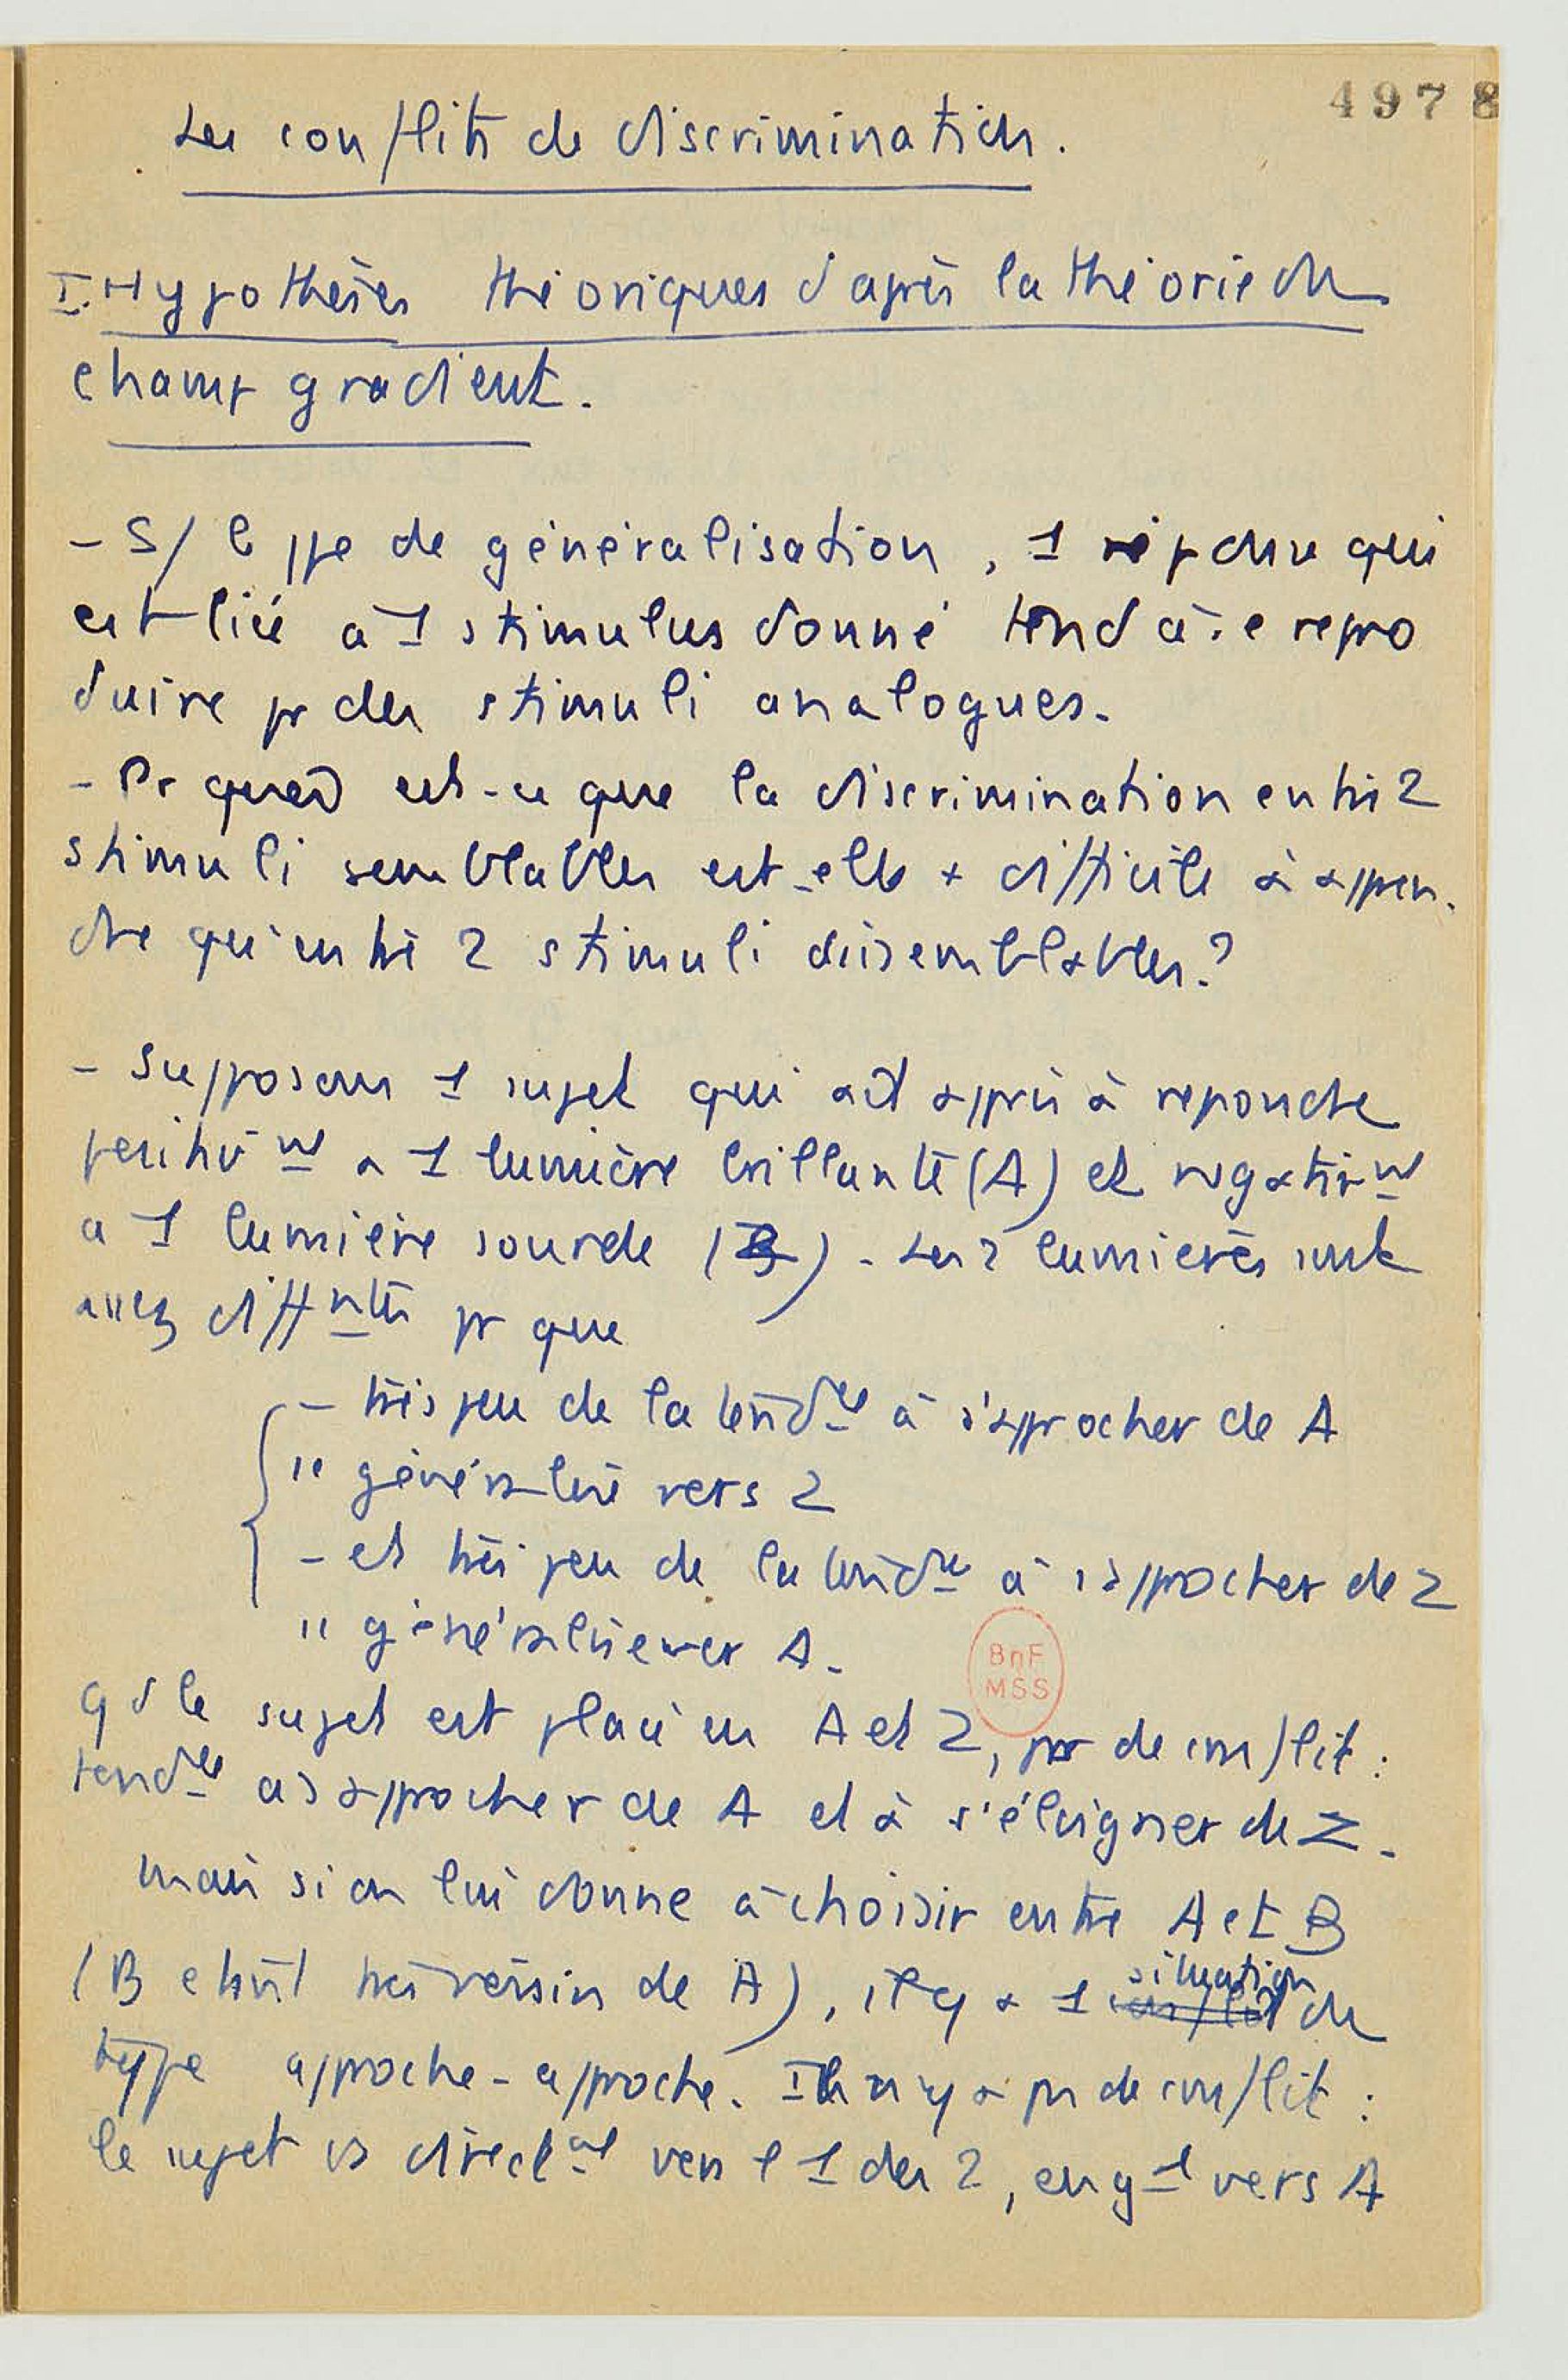 4978
Les conflits de discrimination.
I. Hypothèses théoriques d'après la théorie du
champ gradient.
- S/ le ppe de généralisation, 1 réponse qui
est liée à 1 stimulus donné tend à se repro
duire pr des stimuli analogues.
- Pr quoi est-ce que la discrimination entre 2
stimuli semblables est-elle + difficile à appren-
dre qu'entre 2 stimuli dissemblables?
- Supposons 1 sujet qui ait appris à reponde
positivnt a 1 lumière brillante (A) et négativnt
a 1 lumière sourde (Z). Les 2 lumières sont
assez difftntes pr que
- très peu de la tendce à s'approcher de A
" généralisé vers Z
- et très peu de la tendce à s'approcher de Z
" généralise vers A.
qd le sujet est placé en A et Z, pas de conflit :
tendce a s'approcher de A et à s'éloigner de Z.
mais si on lui donne à choisir entre A et B
(B étant très voisin de A), il y a 1 situation du
type approche-approche. Il n'y a pas de conflit :
le sujet va directnt vers l'1 des 2, en gl vers A
BnF
MSS